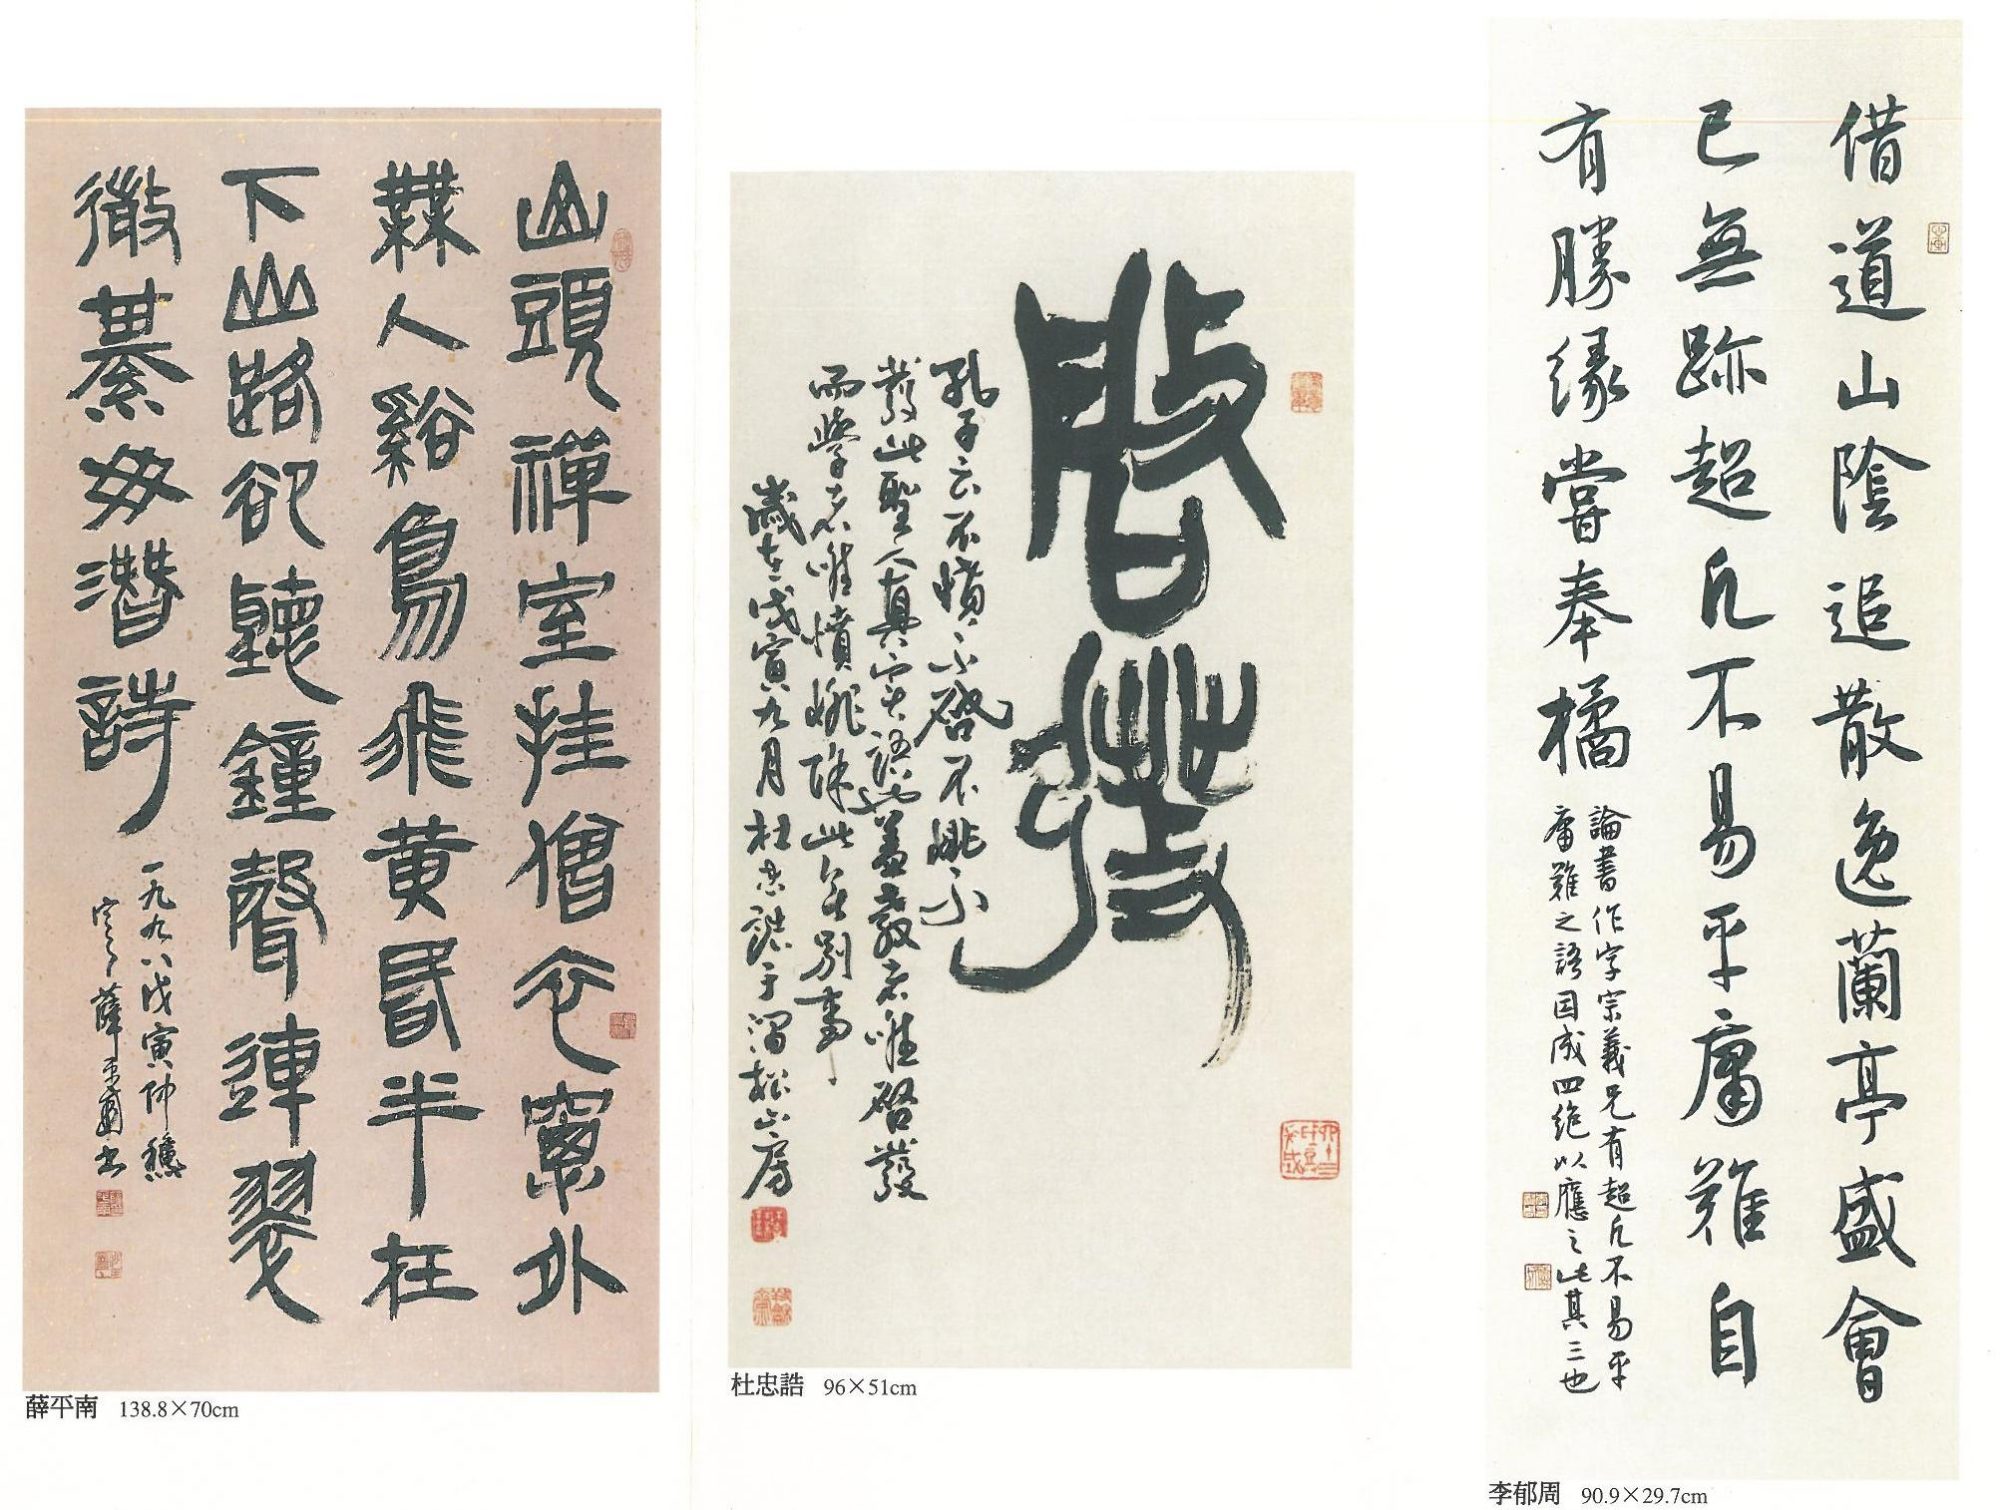 借道山陰追散逸蘭亭盛會
已無跡超凡不易平庸難自
有勝緣嘗奉橘
論書作字宗義兄有超凡不易平
庸難之語因成四絕以應之此其三也
李郁周 90.9×29.7cm
啟發
孔子云不憤不啟不悱不
發此聖人真實語也蓋教者唯啟發
而學者唯憤悱除此無別事
歲在戊寅九月杜忠誥于澗松山房
杜忠誥 96×51cm
山頭禪室挂僧衣窗外
無人谿鳥飛黃昏半在
下山路卻聽鐘聲連翠
微綦毋潛詩
一九九八戊寅仲龝
薛平南書
薛平南 138.8×70cm